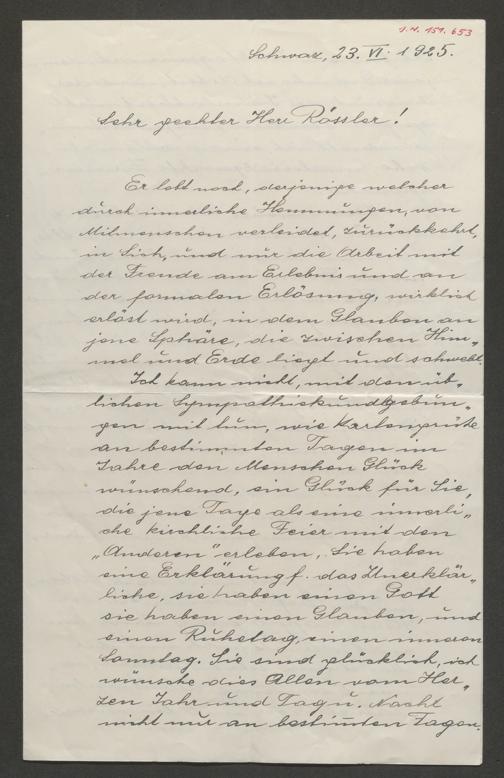 I.N. 151.653
Schwaz, 23. VI. 1925.
Sehr geehter Herr Rössler!
Er lebt noch, derjenige welcher
durch innerliche Hemmungen, von
Mitmenschen verleidet, zurückkehrt,
in Sich, und nur die Arbeit mit
der Freude am Erlebnis und an
der formalen Erlösung, wirklich
erlöst wird, in dem Glauben an
jene Sphäre, die zwischen Him„
mel und Erde liegt und schwebt.
Ich kann nicht, mit den üb„
lichen Sympathiekundgebun„
gen mit tun, wie Kartengrüße
an bestimmten Tagen im
Jahre den Menschen Glück
wünschend, ein Glück für Sie,
die jene Tage als eine innerli„
che kirchliche Feier mit den
„Anderen" erleben, Sie haben
eine Erklärung f. das Unerklär„
liche, sie haben einen Gott
sie haben einen Glauben, und
einen Ruhetag, einen inneren
Sonntag. Sie sind glücklich, ich
wünsche dies Allen vom Her„
zen Jahr und Tag u. Nacht
nicht nur an bestimten Tagen.